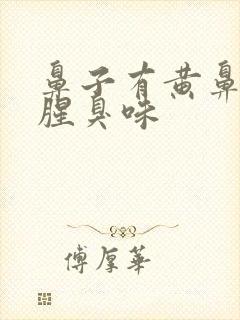 鼻子有黄鼻
腥臭味
傅厚华